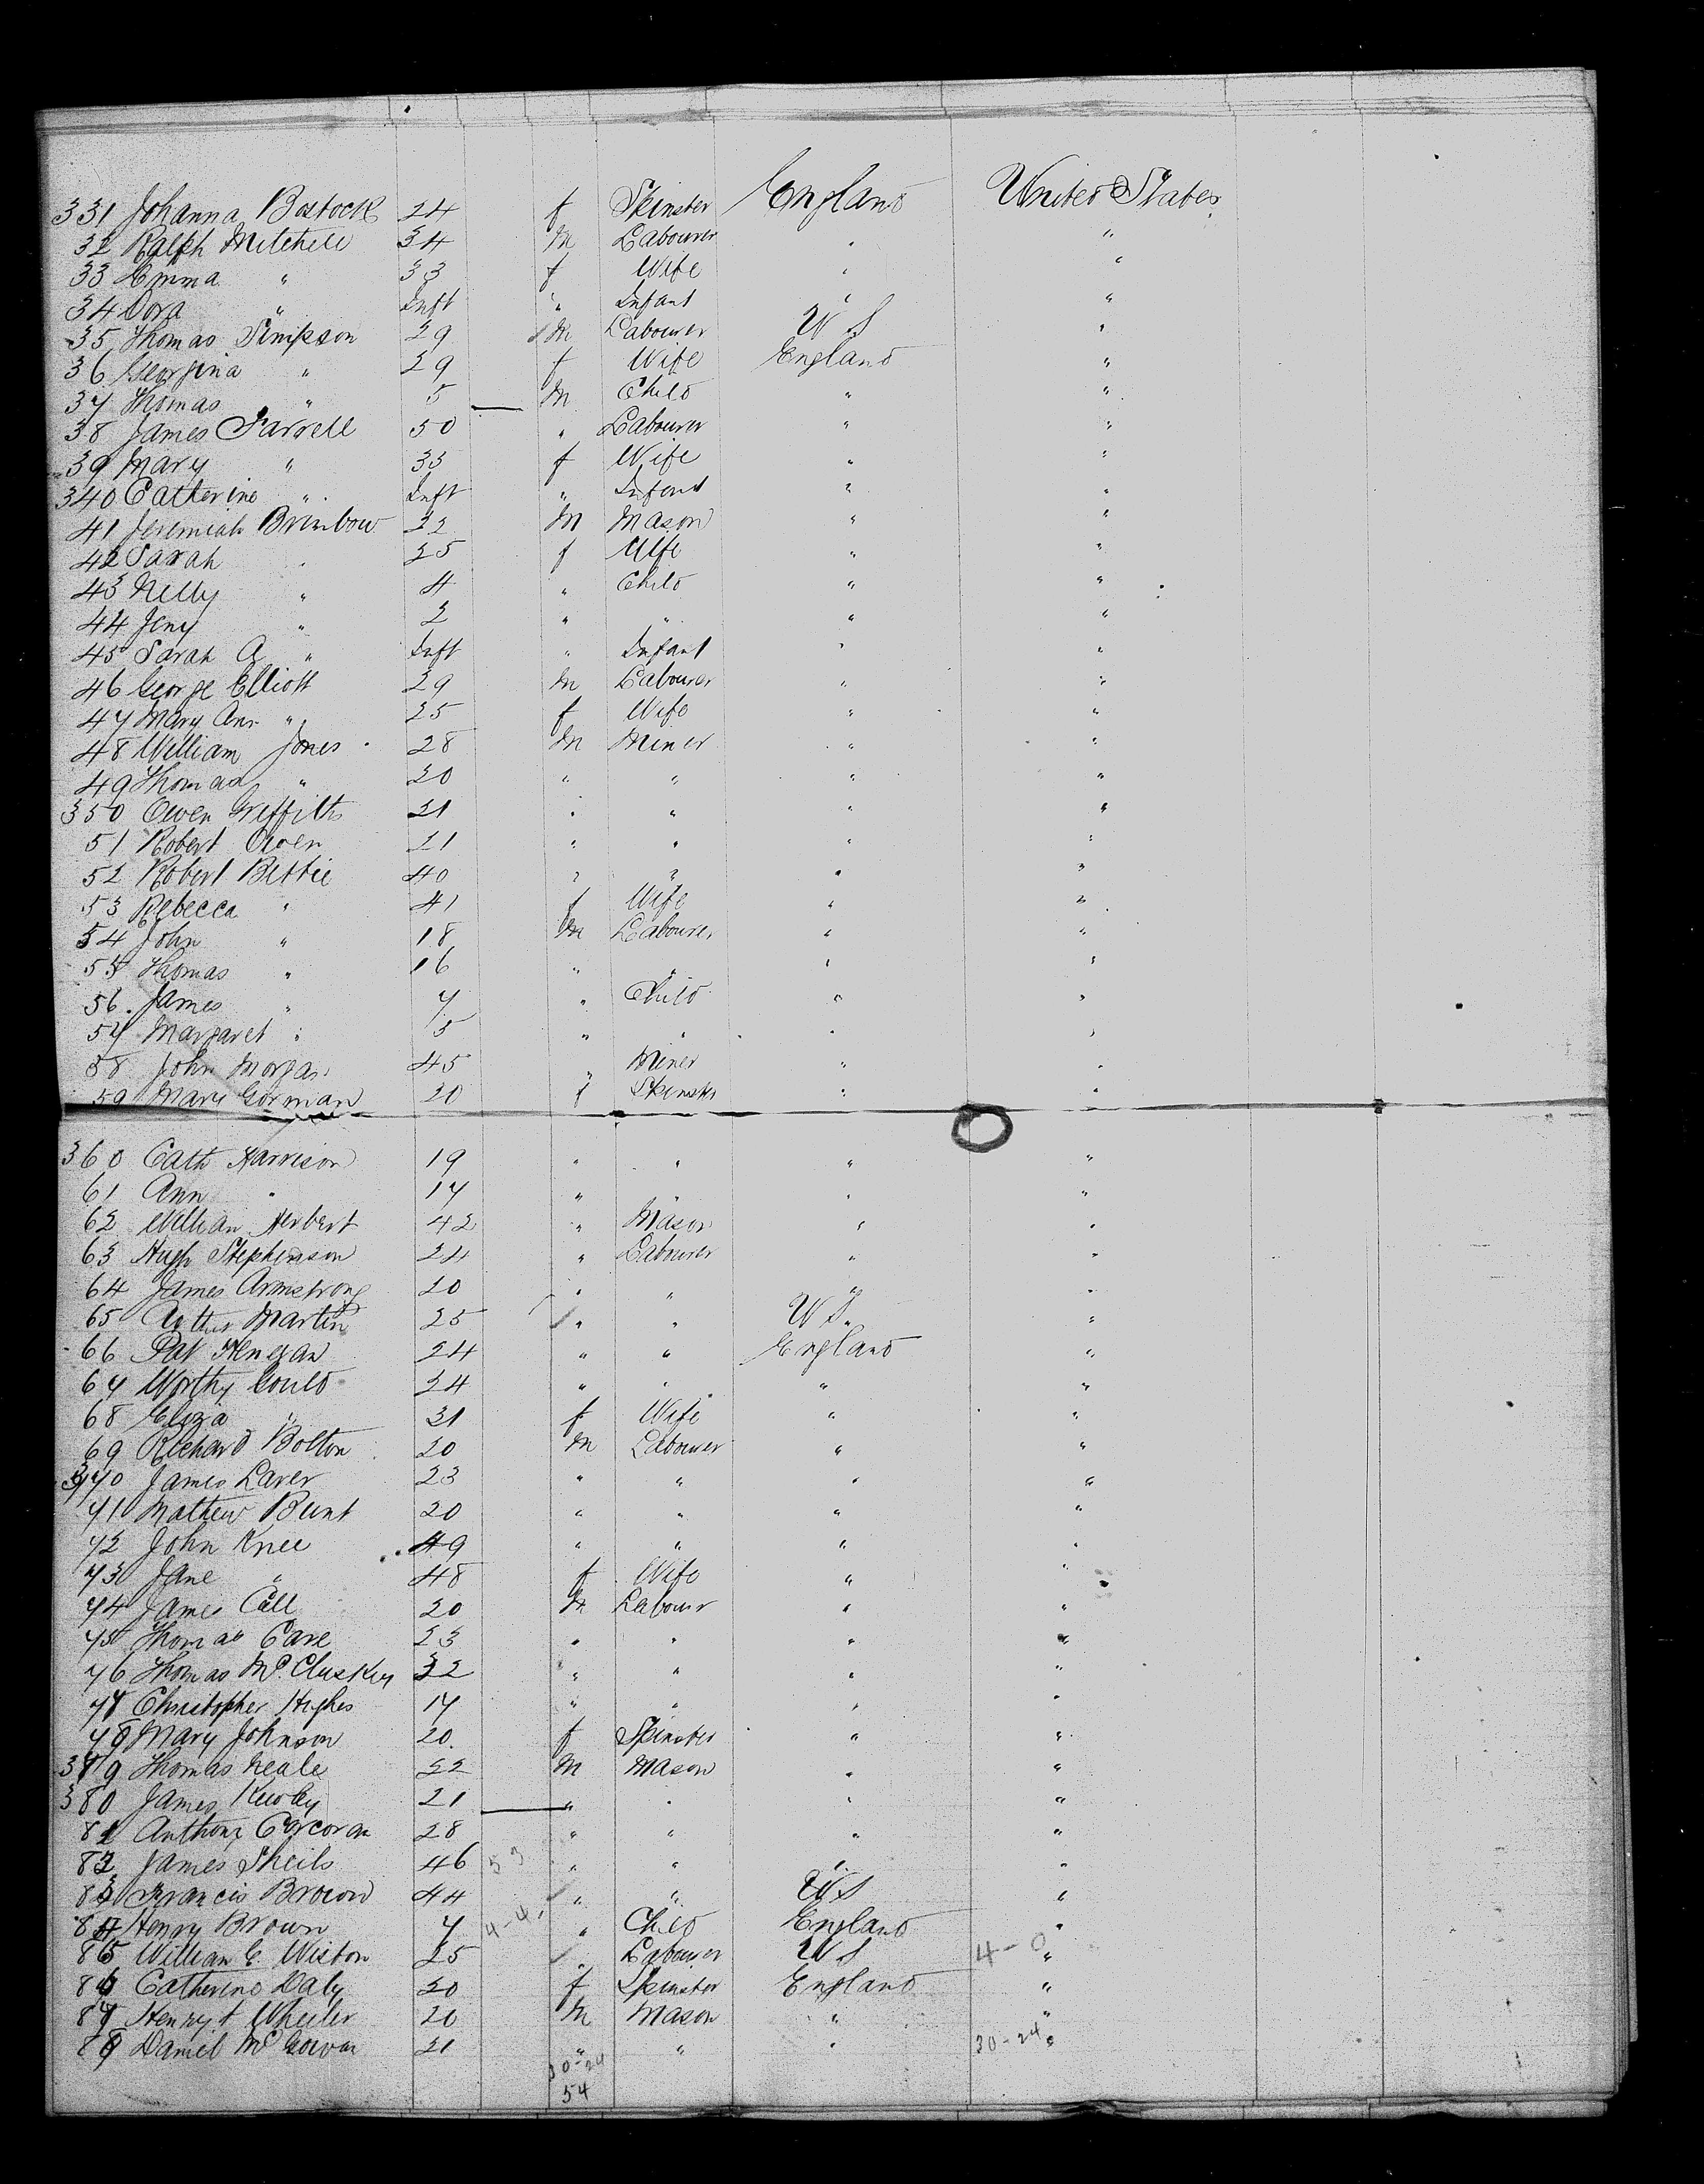 331 Johanna Bostock 24 f Spinster England United States
32 Ralph Mitchell 34 m Labourer " "
33 Emma " 33 f Wife " "
34 Dora " Inft " Infant " "
35 Thomas Simpson 29 m Labourer U S "
36 Georgina " 29 f Wife England "
37 Thomas " 5 m Child " "
38 James Farrell 50 " Labourer " "
39 Mary " 33 f Wife " "
340 Catherine " Inft " Infant " "
41 Jeremiah 32 m Mason " "
42 Sarah " 25 f Wife " "
43 Nelly " 4 " Child " "
44 Jeny " 2 " " " "
45 Sarah A " Inft " Infant " "
46 George Elliott 29 m Labourer " "
47 Mary Ann " 25 f Wife " "
48 William Jones 28 m Miner " "
49 Thomas " 20 " " " "
350 Owen Griffiths 21 " " " "
51 Robert Owen 21 " " " "
52 Robert Bettie 40 " " " "
53 Rebecca " 41 f Wife " "
54 John " 18 m Labourer " "
55 Thomas " 16 " " " "
56 James " 7 " Child " "
57 Margaret " 5 " " " "
58 John Morgan 45 " Miner " "
59 Mary Gorman 20 f Spinster " "
360 Cath Harrison 19 " " " "
61 Ann " 17 " " " "
62 William Herbert 42 " Mason " "
63 Hugh Stephenson 24 " Labourer " "
64 James Armstrong 20 " " " "
65 Arthur Martin 25 " " U S "
66 Pat Henegan 24 " " England "
67 Worthy Gould 24 " " " "
68 Eliza " 21 f Wife " "
69 Richard Bolton 20 m Labourer " "
370 James Laver 23 " " " "
71 Mathew Bunt 20 " " " "
72 John Knee 49 " " " "
73 Jane " 48 f Wife " "
74 James Call 20 m Labour " "
75 Thomas Cave 23 " " " "
76 Thomas McCluskey 32 " " " "
77 Christopher Hughes 17 " " " "
78 Mary Johnson 20 f Spinster " "
379 Thomas Neale 22 m Mason " "
380 James 21 " " " "
81 Anthony Corcoran 28 " " " "
82 James Sheils 46 53 " " " "
83 Francis Brown 44 " " U S "
84 Henry Brown 7 4-4 " Child England "
85 William E. Wiston 25 " Labourer U S 4-0 "
86 Catherine Daly 20 f Spinster England "
87 Henry t Wheeler 20 m Mason " "
88 Daniel McGowan 21 " " " 30-24 "
30-24
54